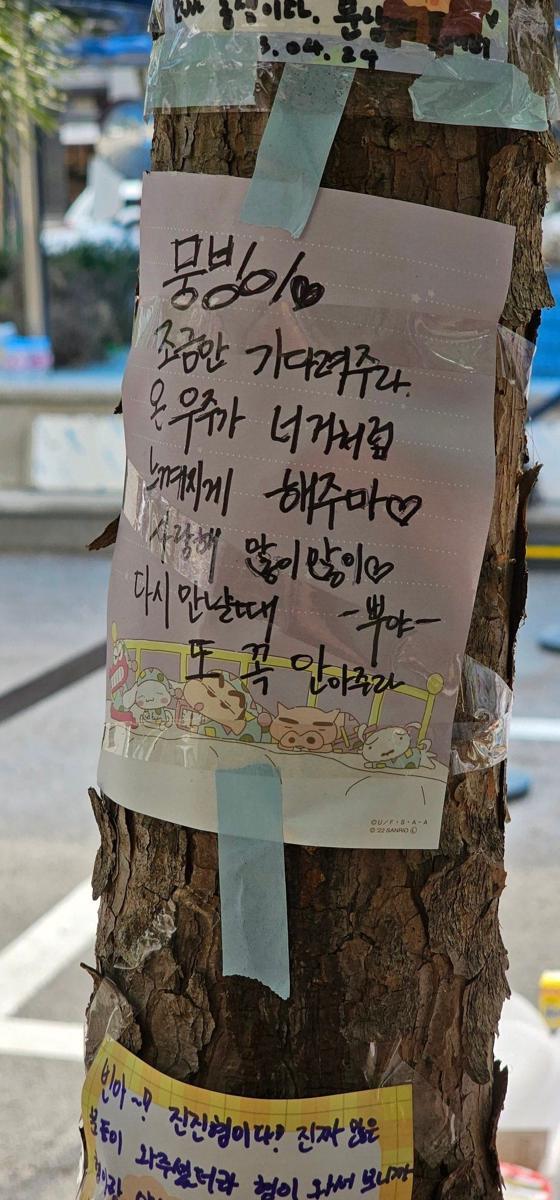 동생이다. 문심
3.04.24
뭉빙이♥
조금만 기다려주라.
온 우주가 너거처럼
느껴지게 해주마♡
사랑해 많이많이♡
다시 만날때 -뿌야-
또 꼭 안아주라
©U/F·S·A-A
©'22 SANRIO Ⓛ
빈아~? 진진형이다? 진짜 많은
와주셨더라 형이 와서 보니까